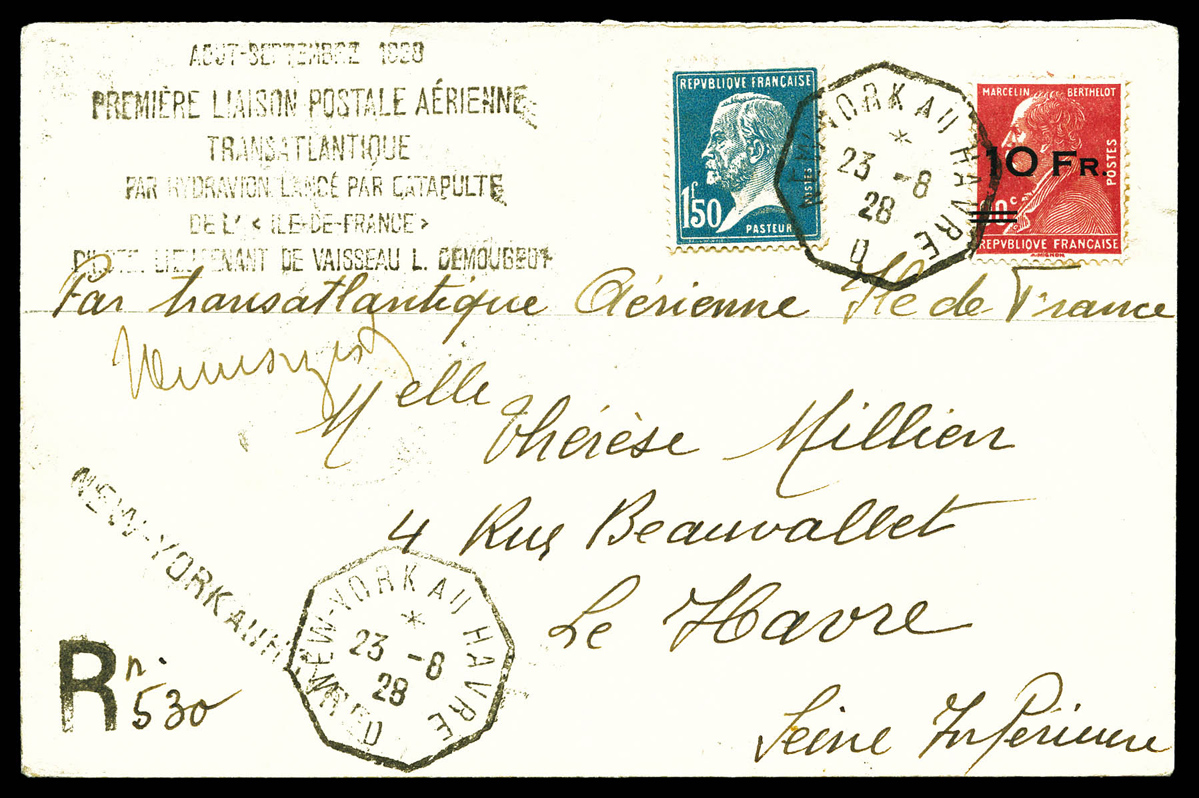 AOUT-SEPTEMBRE 1928
PREMIÈRE LIAISON POSTALE AÉRIENNE
TRANSATLANTIQUE
PAR HYDRAVION LANCÉ PAR CATAPULTE
DE L' < ILE-DE-FRANCE >
PILOTE: LIEUTENANT DE VAISSEAU L. DEMOUGEOT
REPVBLIQVE FRANÇAISE
1F50
POSTES
PASTEUR
NEW-YORK AU HAVRE
*
23 -8
28
D
MARCELIN BERTHELOT
10 FR.
POSTES
REPVBLIQVE FRANÇAISE
A.MIGNON
Par transatlantique Aérienne Ile de France
Melle Thérèse Millien
4 Rue Beauvallet
Le Havre
Seine Inférieure
NEW-YORK AU
NEW-YORK AU HAVRE
*
23 -8
28
D
R n° 530